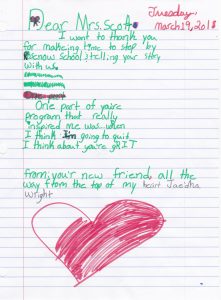 Tuesday,
March 19, 2018
Dear Mrs. Scott
I want to thank you
for makeing time to stop by
school & telling your story
with us.
One part of youre
program that really
inspired me was when
I think I'm going to quit
I think about you're grIT
from, your new friend, all the
way from the top of my heart Jaedha
Wright